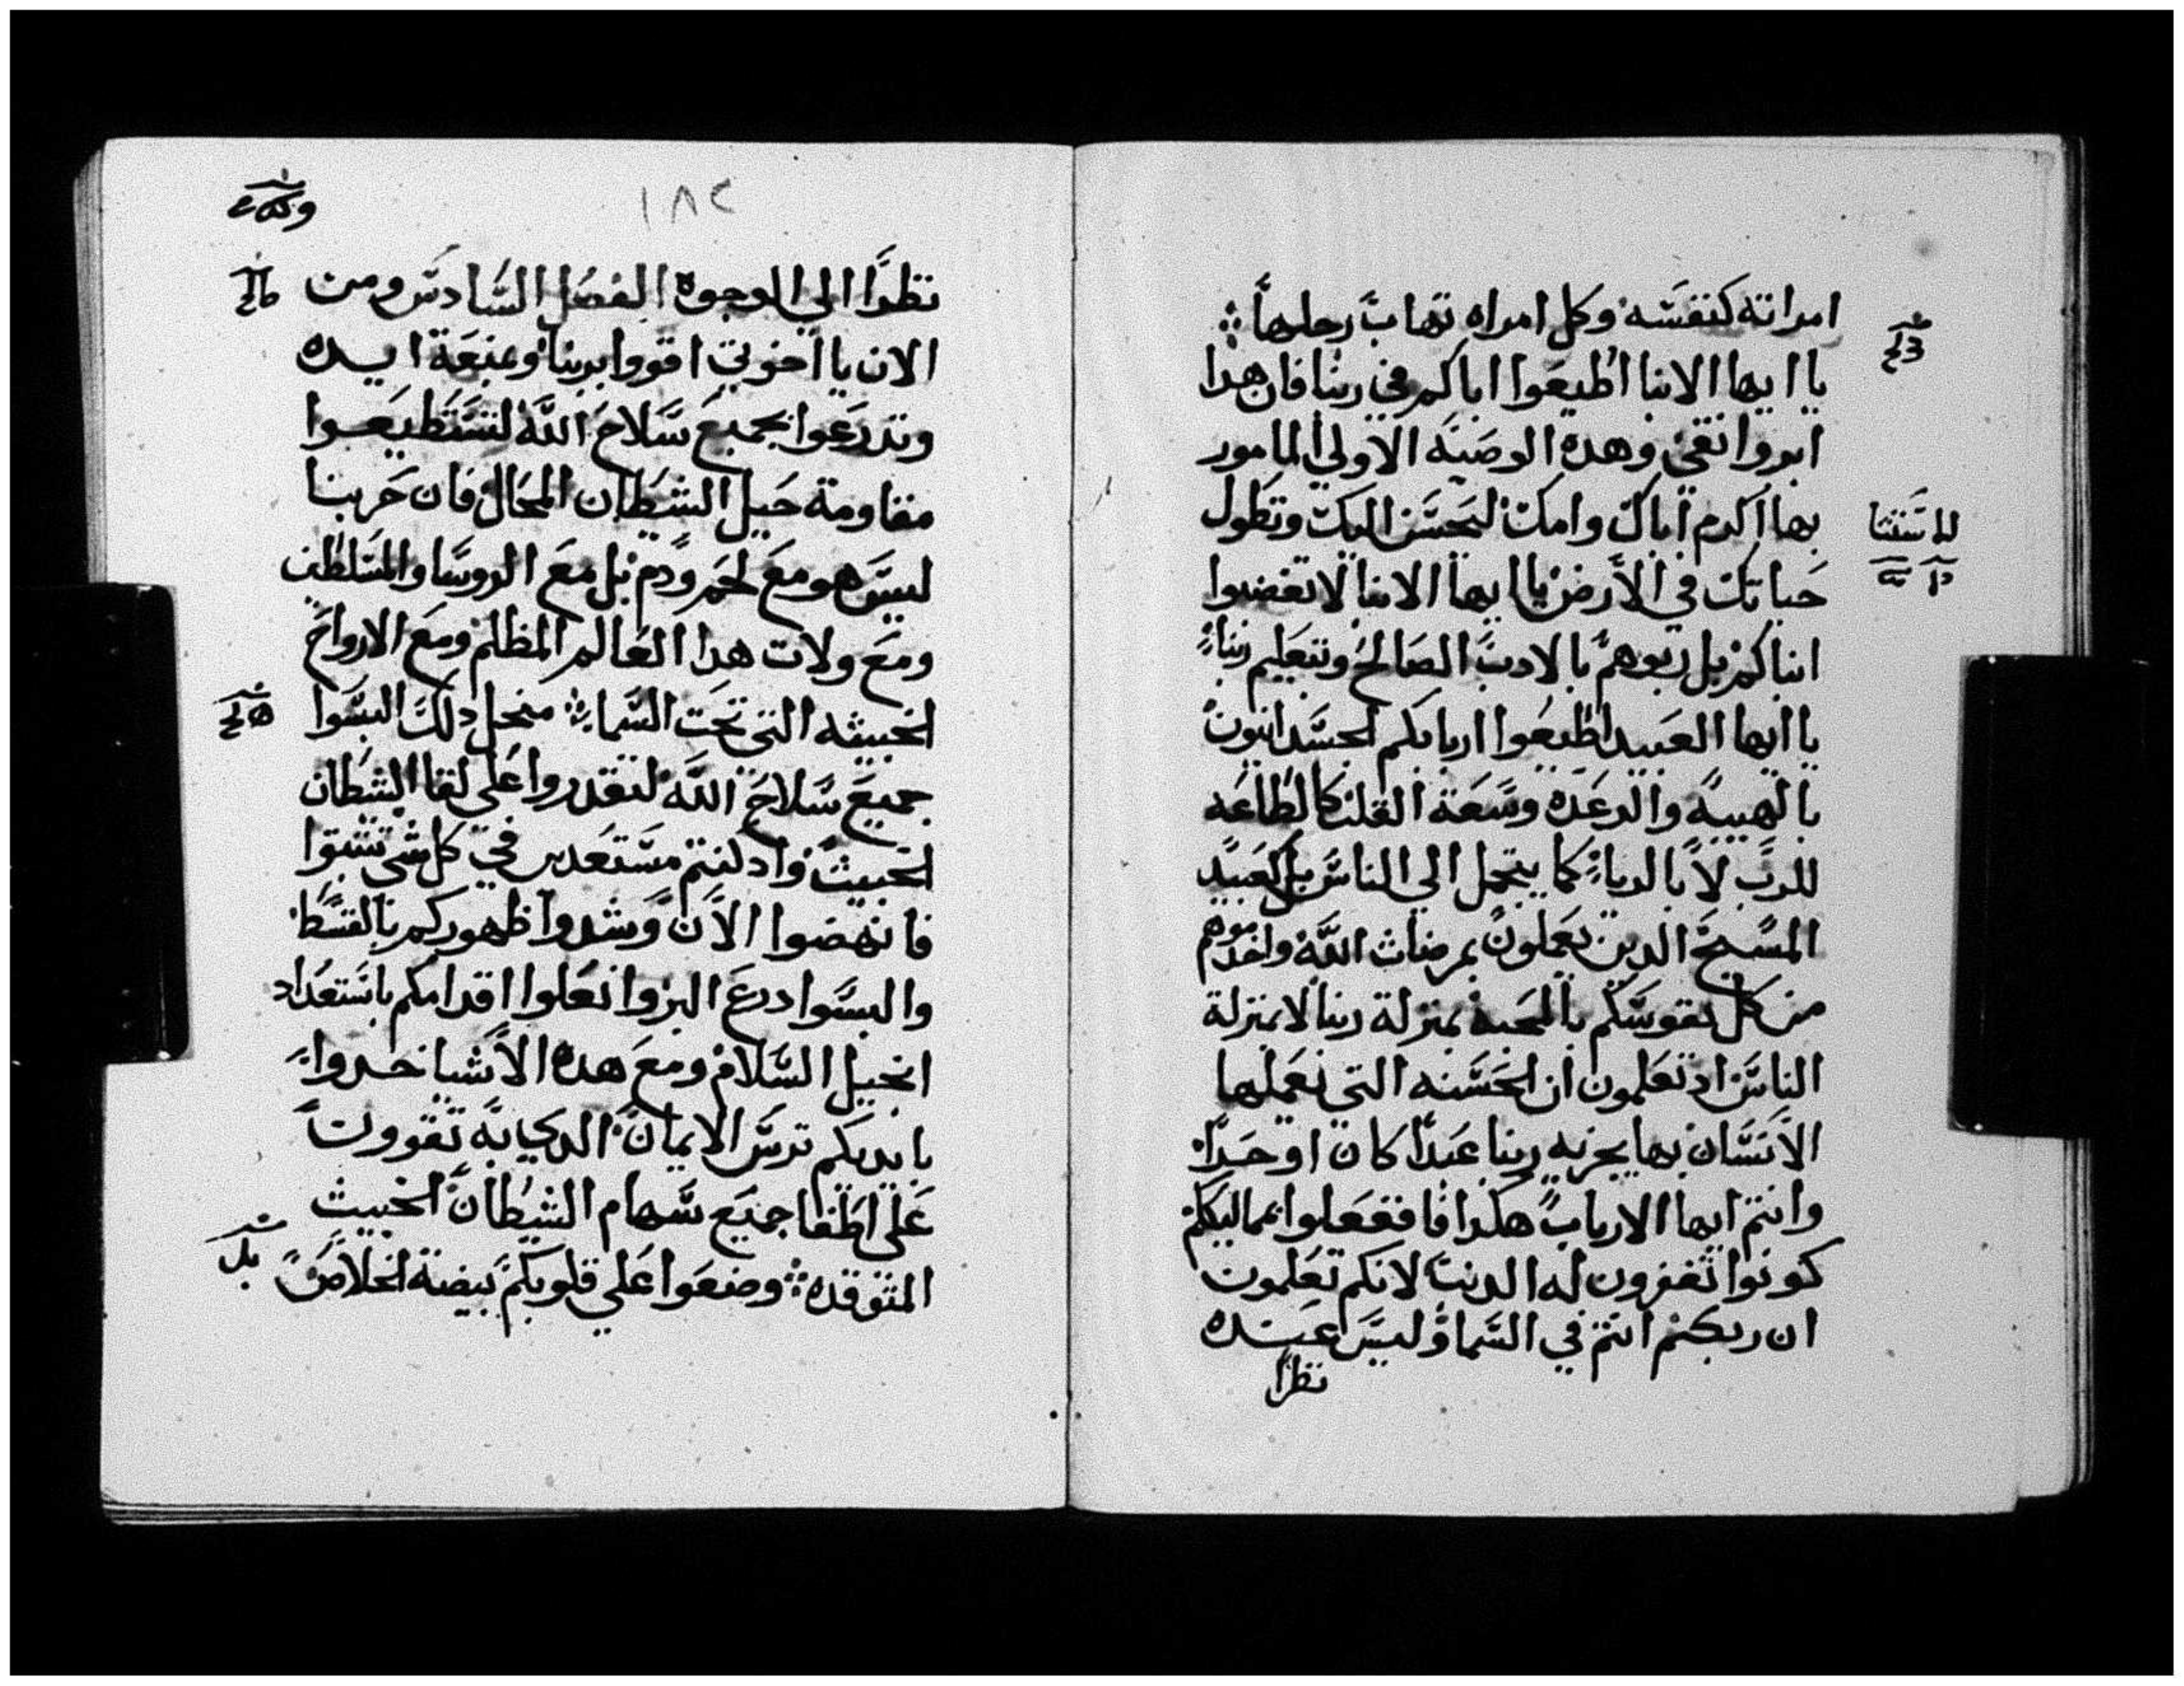 امراته كنفسه وكل امراه تهاب رجلها
يا ايها الابنا اطيعوا اباكم في ربنا فان هدا
ابروا تقي وهده الوصيه الاولي المامور
بها اكرم اباك وامك ليحسن اليك وتطول
حياتك في الارض يا ايها الابا لا تغضبوا
ابناكم بل ربوهم بالادب الصالح وبتعليم ربنا
يا ايها العبيد اطيعوا اربابكم الجسدانيون
بالهيبه والرعده وسعة القلب كالطاعه
للرب لا بالريا كما يتجمل الي الناس بل كعبيد
المسيح الدين يعملون بمرضات الله واخدموهم
من كل نفوسكم بالمحبة بمنزلة ربنا لا بمنزلة
الناس اد تعلمون ان الحسنه التي يعملها
الانسان بها يجزيه ربنا عبدا كان او حرا
وانتم ايها الارباب هكدا فافعلوا بمماليككم
كونوا تغفرون له الدنب لانكم تعلمون
ان ربكم انتم في السما وليس عنده
نظرا
للاستثنا
١٨٢
نظرا الي الوجوه الفصل السادس ومن
الان يا اخوتي اقووا بربنا وبمنعة ايده
وتدرعوا بجميع سلاح الله لتستطيعوا
مقاومة حيل الشيطان المحال فان حربنا
ليس هو مع لحم ودم بل مع الروسا والمسلطين
ومع ولات هدا العالم المظلم ومع الارواح
الخبيثه التي تحت السما من اجل دلك البسوا
جميع سلاح الله لتقدروا علي لقا الشيطان
الخبيث واد كنتم مستعدين في كل شي تثبتوا
فانهضوا الان وشدوا ظهوركم بالقسط
والبسوا درع البر وانعلوا اقدامكم باستعداد
انجيل السلام ومع هده الاشيا خدوا
بايديكم ترس الايمان الدي به تقوون
علي اطفا جميع سهام الشيطان الخبيث
المتوقده وضعوا علي قلوبكم بيضة الخلاص